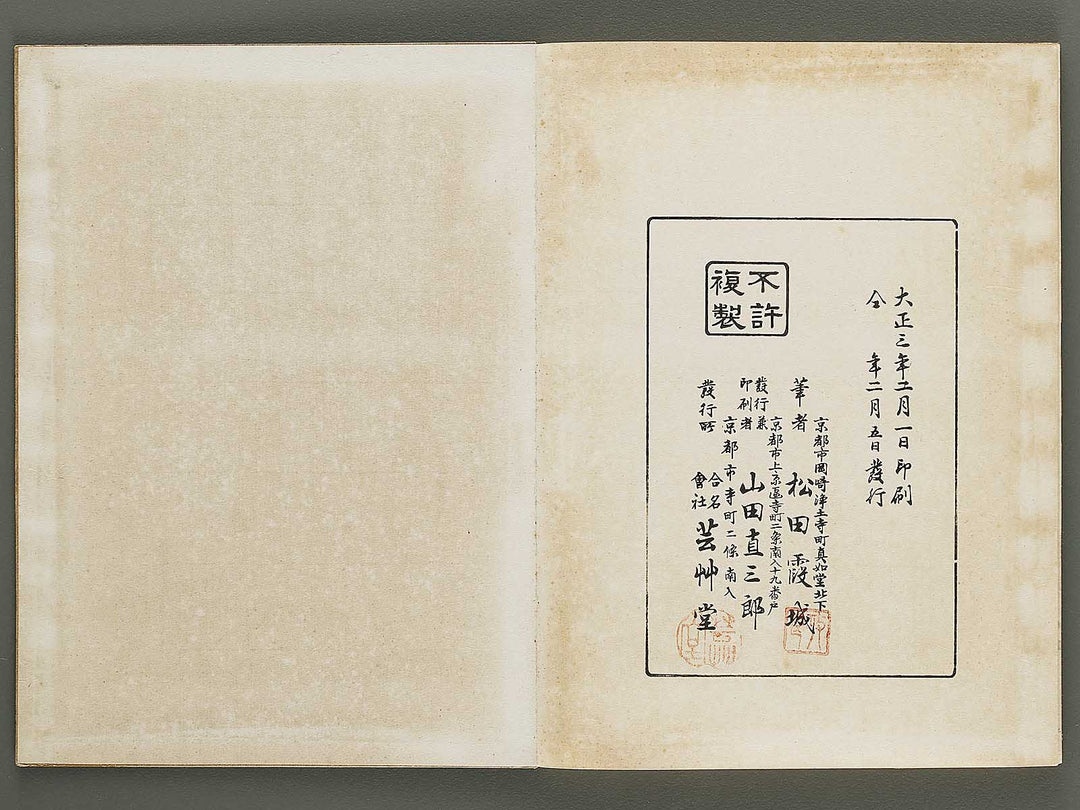 大正三年二月一日印刷
仝 年二月五日發行
不許
複製
京都市岡崎淨土寺町真如堂北下
筆者 松田霞城
京都市上京區寺町二条南入十九番戸
發行兼
印刷者 山田直三郎
京都市寺町二條南入
發行所 合名會社 芸艸堂